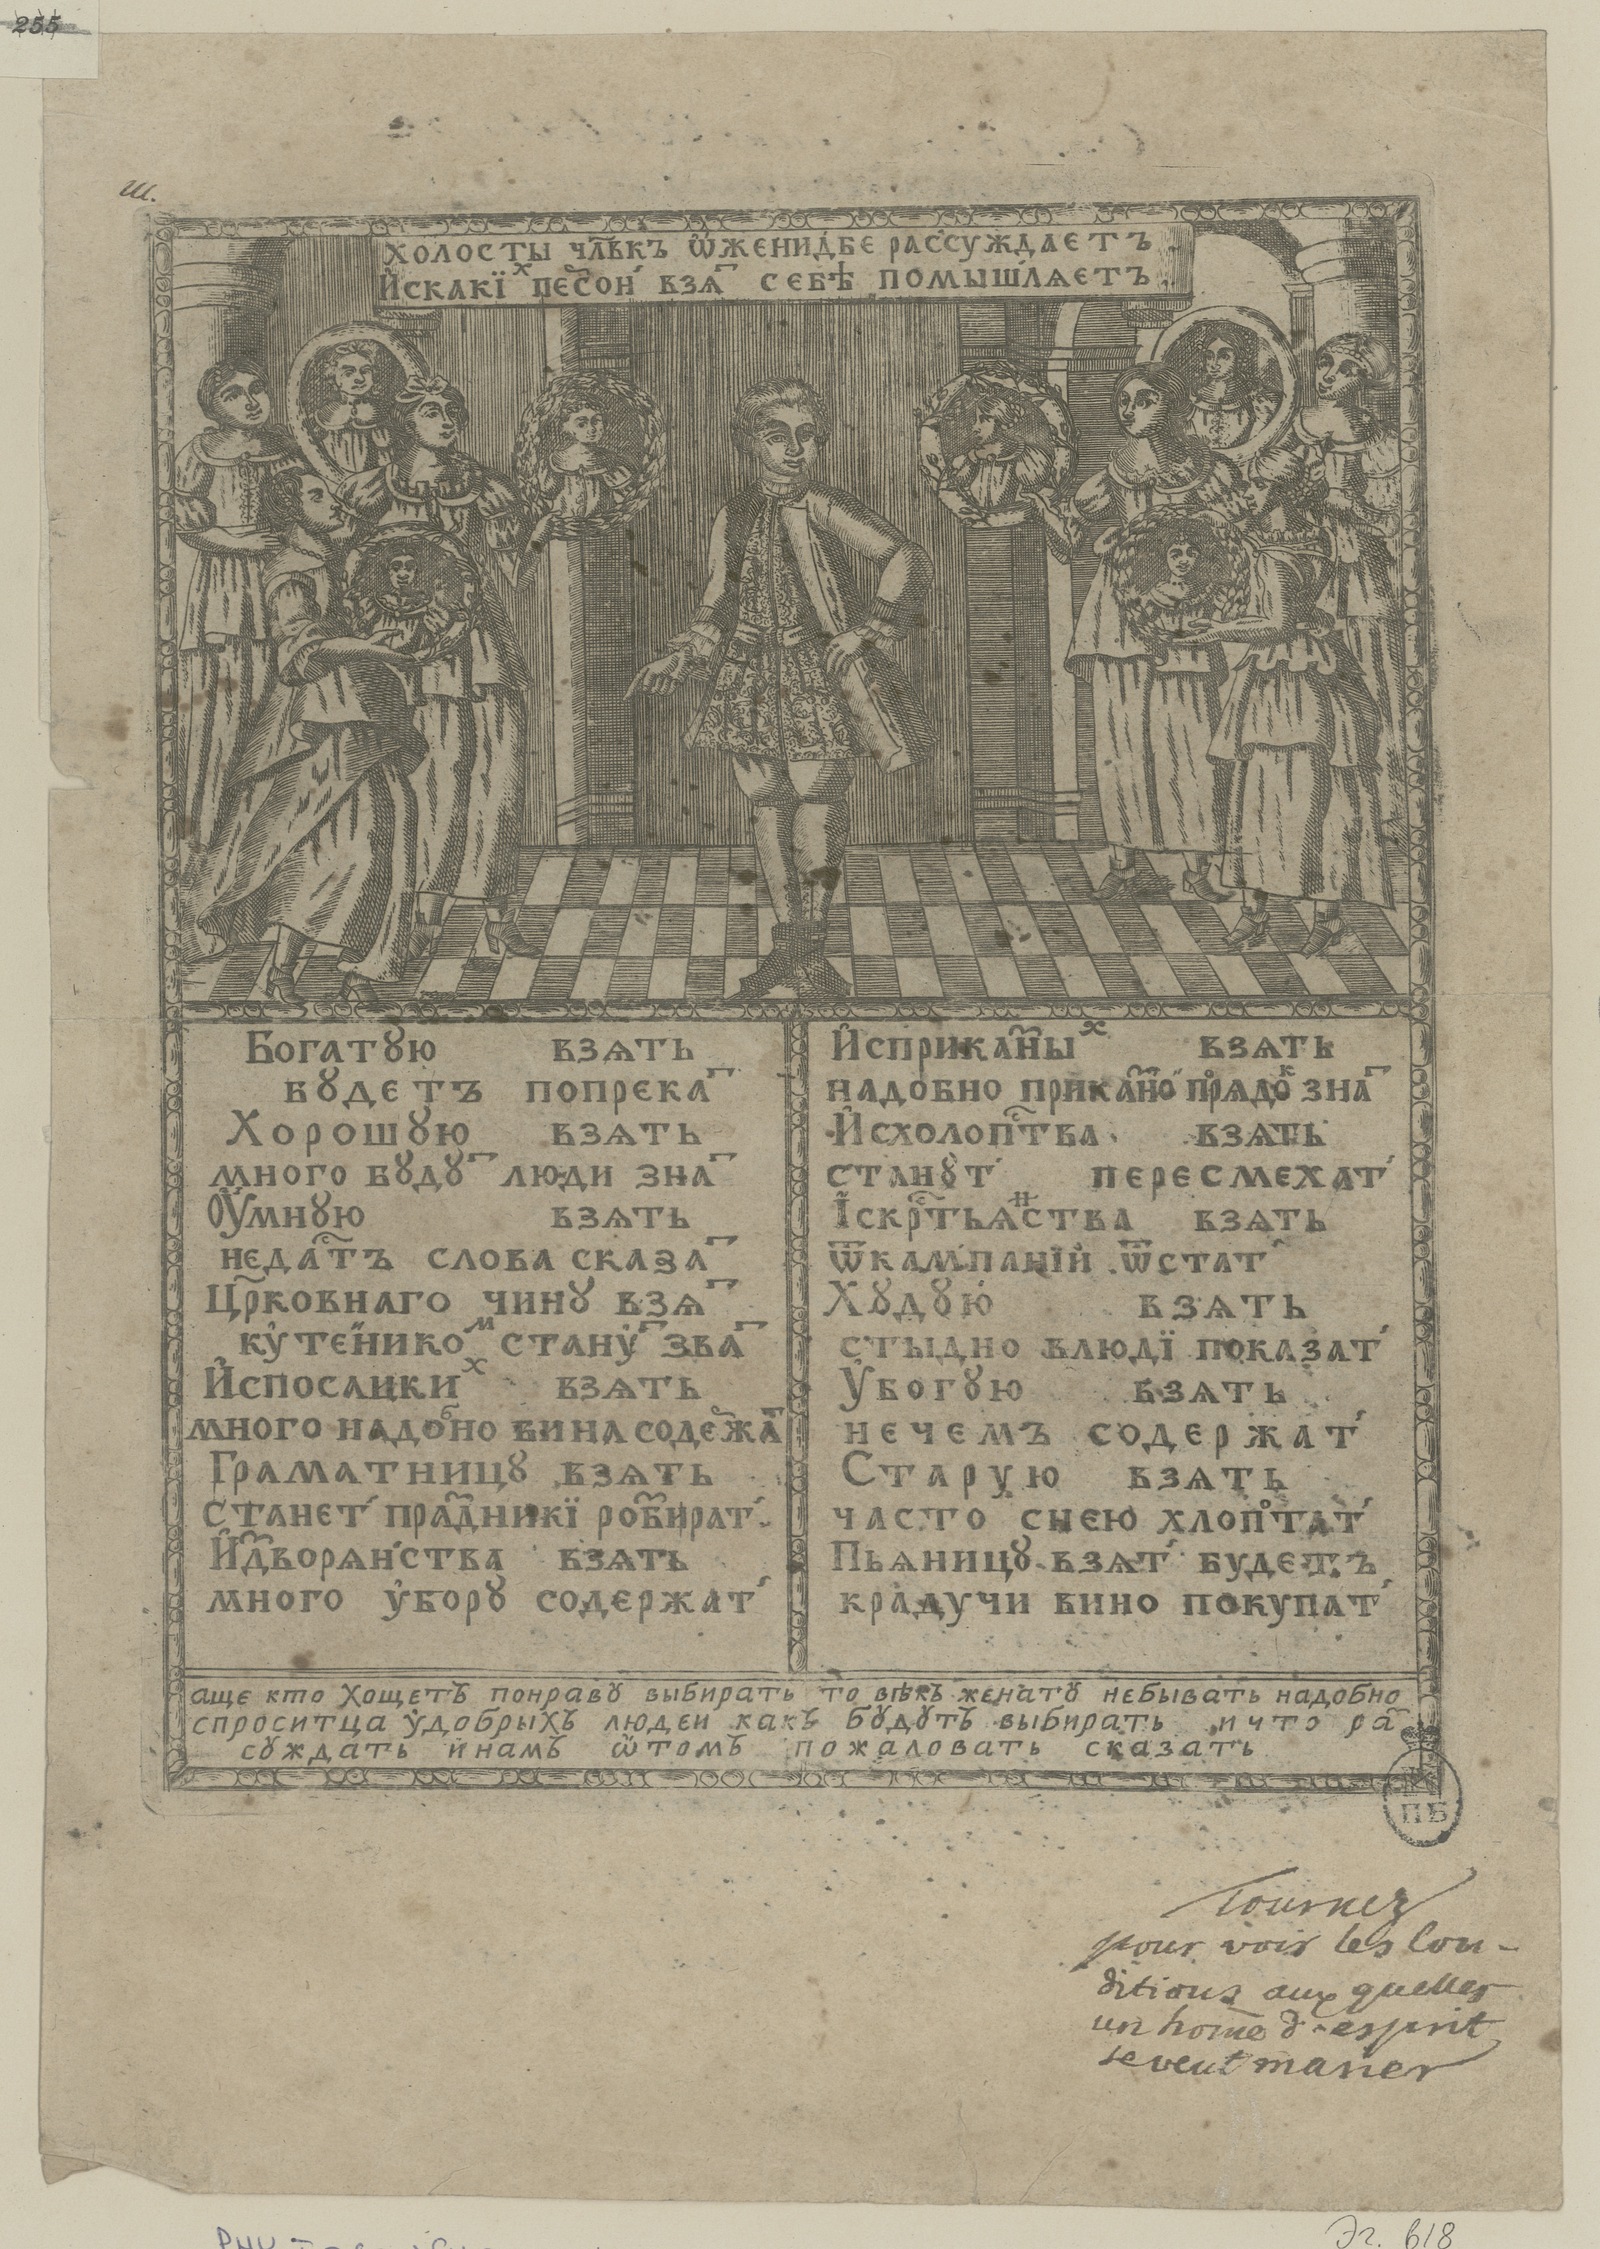 255
ш.
ХОЛОСТЫ ЧЛ҃ВКЪ Ѡ҆ЖЕНИДБЕ РАССУЖДАЕТЪ
И҆СКАКЇⷯ ПЕ҃СОН ВЗѦ⸍ СЕБѢ ПОМЫШЛѦЕТЪ
Богатꙋю взѧть
бꙋдетъ попрека⸍
Хорошꙋю взѧть
много бꙋдꙋ⸍ люди зна⸍
Ѹмнꙋю взѧть
неда҇тъ слова сказа⸍
Цр҃ковнаго чинꙋ взѧ⸍
кꙋте́никоⷨ станꙋ⸍ зва⸍
И҆спосацкиⷯ взѧть
много надоⷠно вина содежа⸍
Граматницꙋ взѧть
станет праⷥники роⷥбират
И҆дворѧнства взѧть
много у҆борꙋ содержат
И҆сприка҃ныⷯ взѧть
надобно прика҃но прѧдоⷦ зна⸍
И҆схолоп҇тва взѧть
станꙋт пересмехат
Їскр҇тьѧⷩства взѧть
ѿкампанїй ѿстат
Хꙋдꙋю взѧть
стыдно влюдї показат
У҆богꙋю взѧть
нечемъ содержат
Старую взѧть
часто снею хлоптат
Пьѧницꙋ взѧт будетъ
крадучи вино покупат
аще кто хощетъ понравꙋ выбирать то вѣкъ женатꙋ небывать надобно
спроситца у҆добрыхъ людеи какъ бꙋдꙋтъ выбирать и что ра҇
сꙋждать инамъ ѡ҆томъ пожаловать сказать
ПБ
Tournez
pour voir les Con-
ditions aux quelles
un home d'esprit
se veut marier
Эг. 618